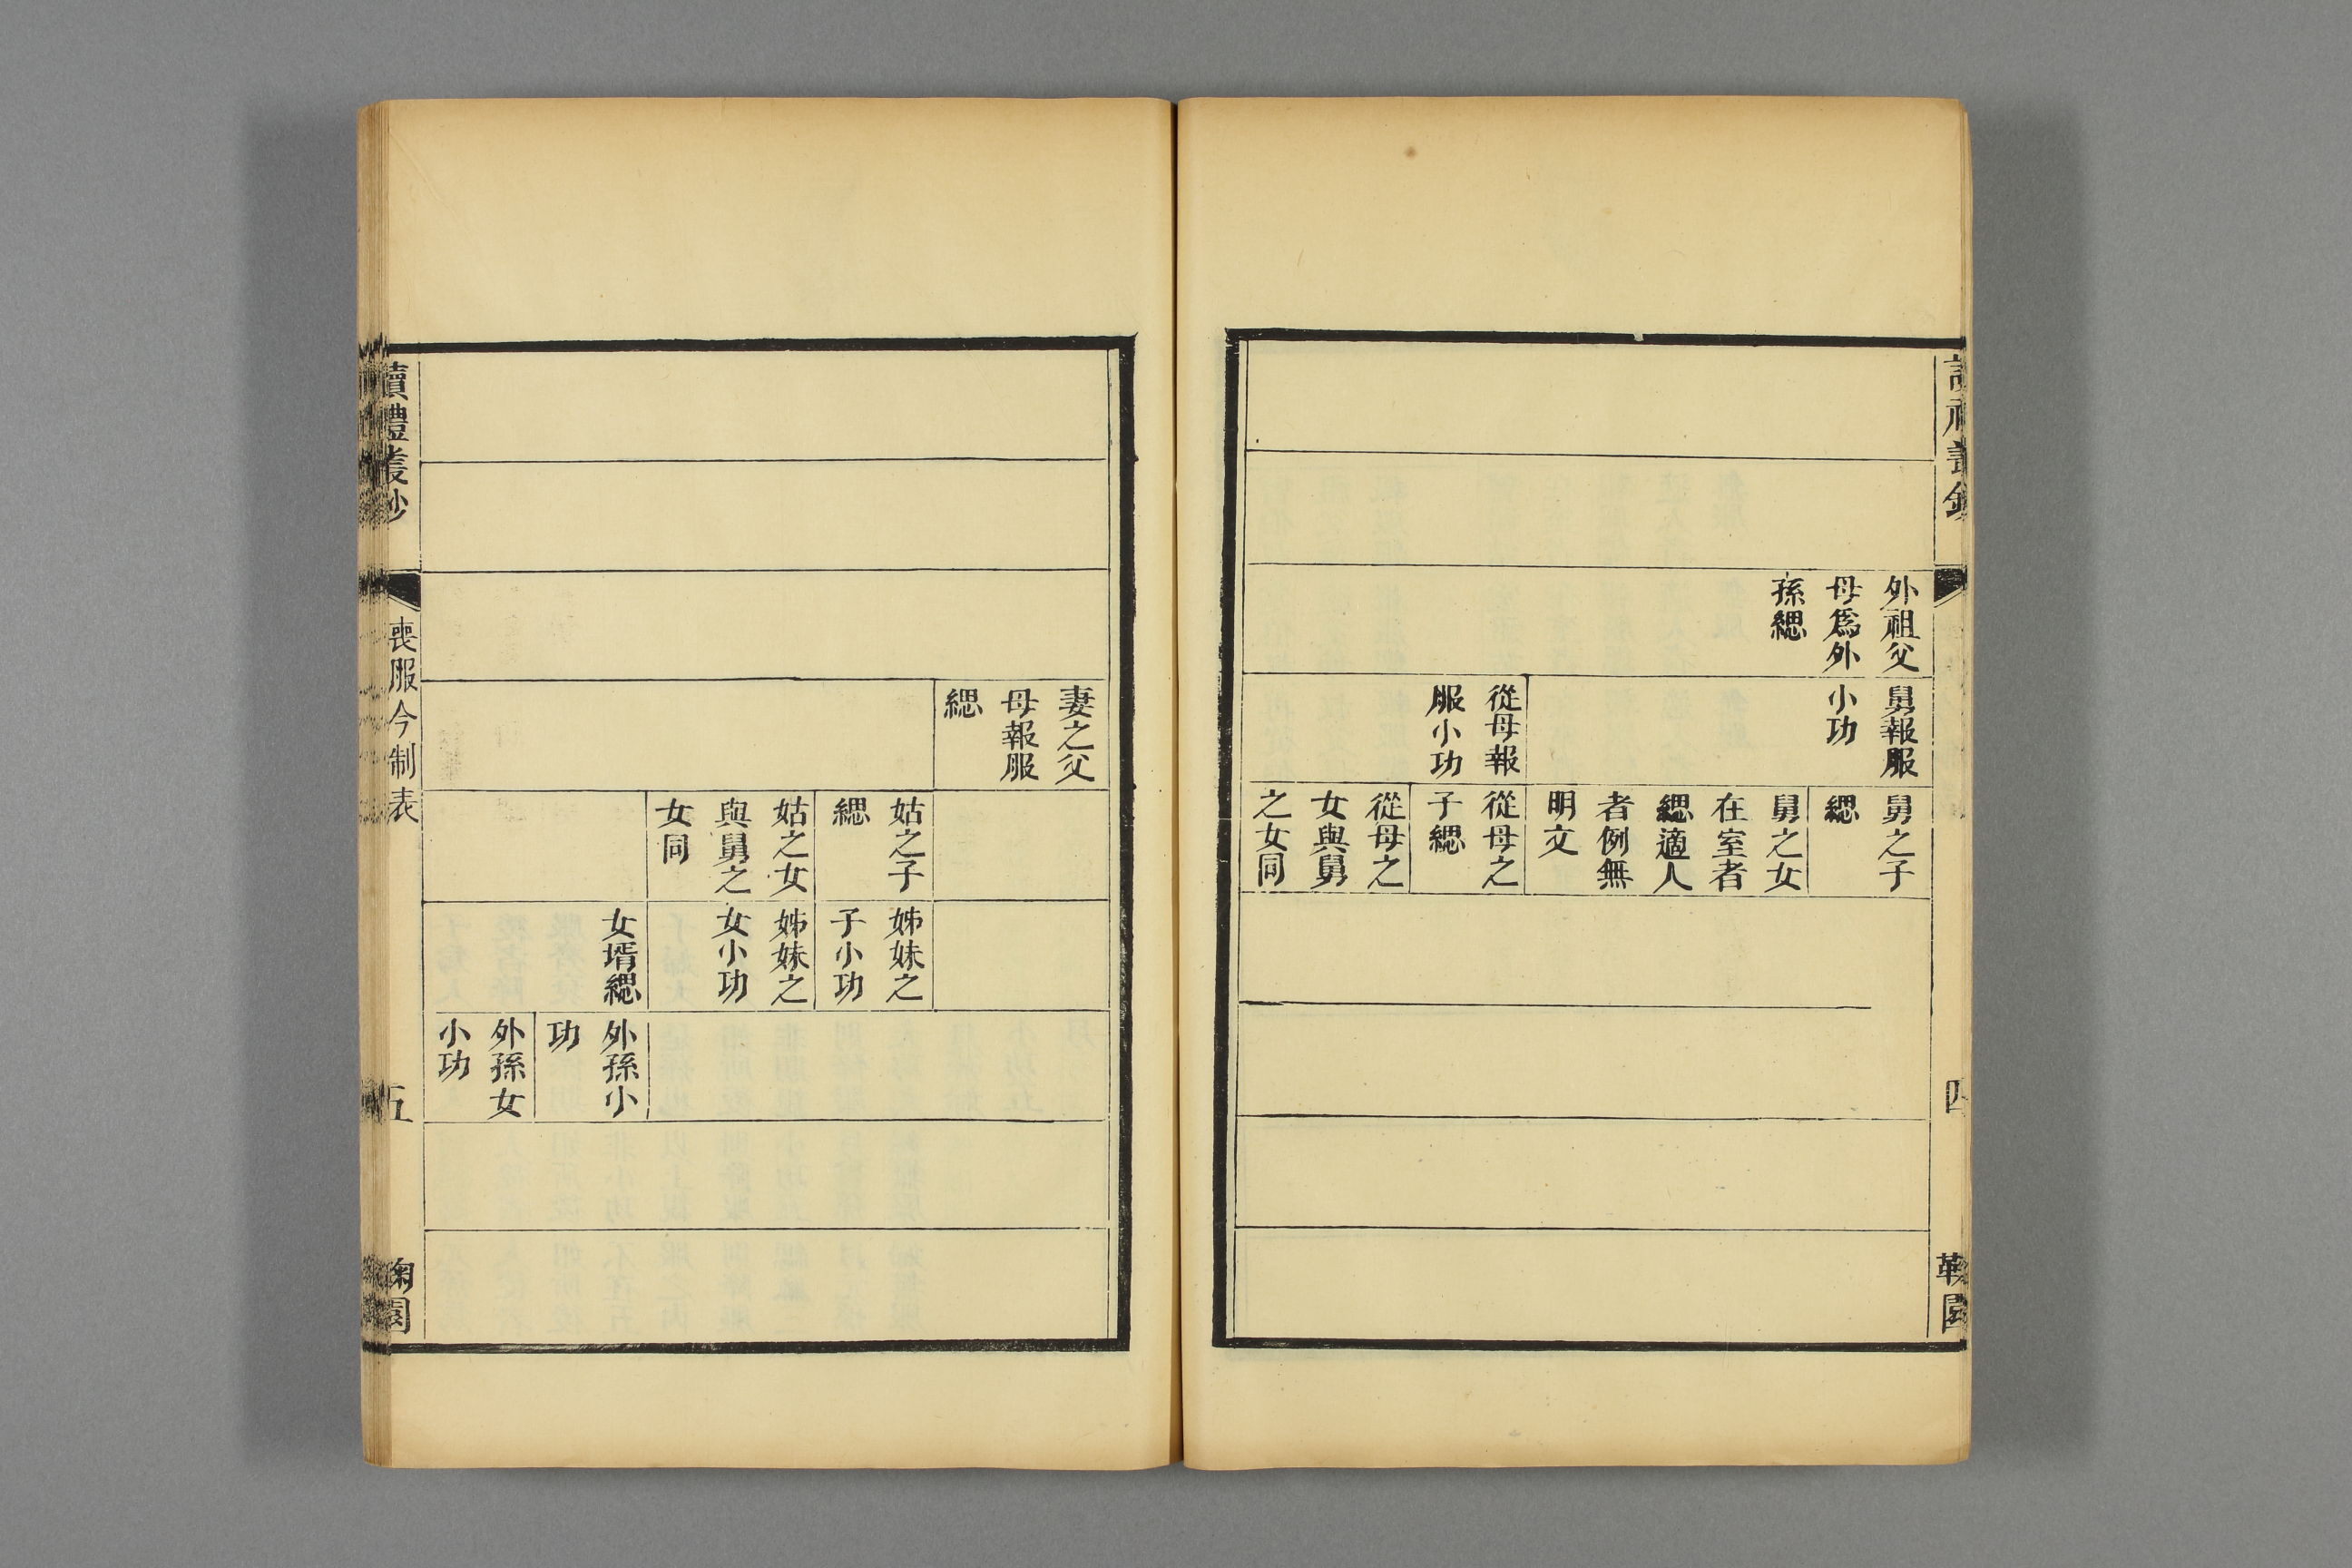 外祖父
母爲外
孫緦
舅報服
小功
從母報
服小功
舅之子
緦
舅之女
在室者
緦適人
者例無
明文
從母之
子緦
從母之
女與舅
之女同
四
讀禮叢鈔
喪服今制表
五
鞠園
妻之父
母報服
緦
姑之子
緦
姑之女
與舅之
女同
姊妹之
子小功
姊妹之
女小功
女壻緦
外孫小
功
外孫女
小功